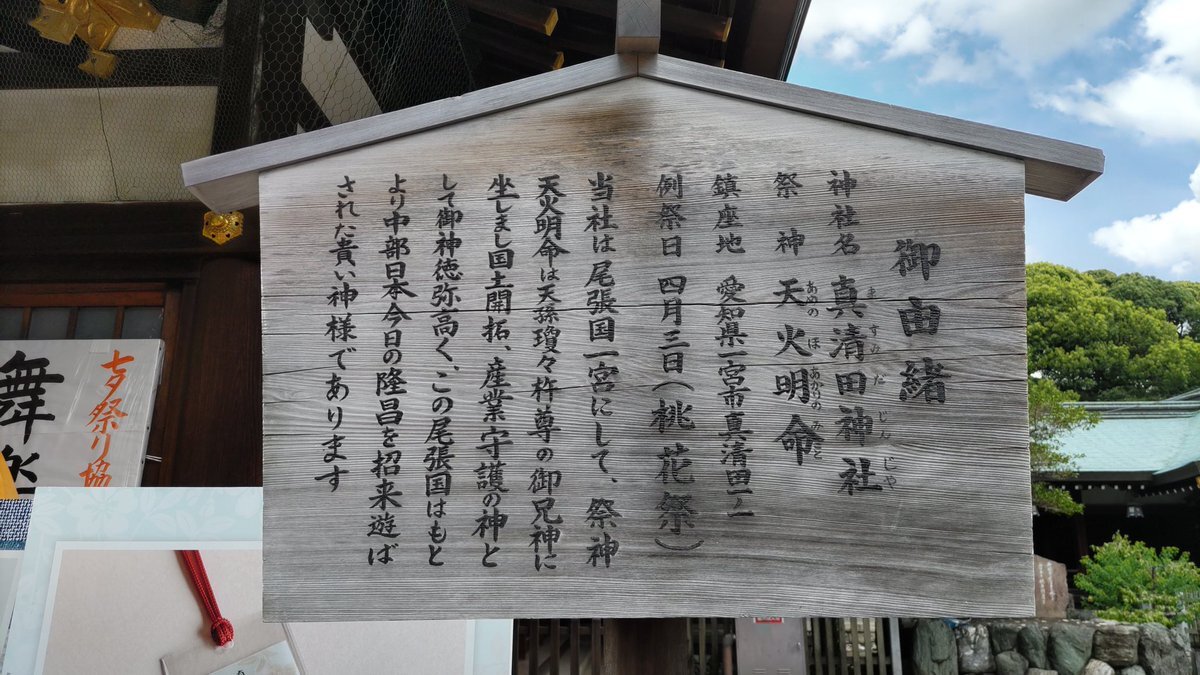 御由緒
神社名 真清田神社
ますみだじんじゃ
祭神 天火明命
あめのほあかりのみこと
鎮座地 愛知県一宮市真清田一ノ二
例祭日 四月三日(桃花祭)
当社は尾張国一宮にして、祭神
天火明命は天孫瓊々杵尊の御兄神に
坐しまし国土開拓、産業守護の神と
して御神徳弥高く、この尾張国はもと
より中部日本今日の隆昌を招来遊ば
された貴い神様であります
七夕祭り協
舞楽